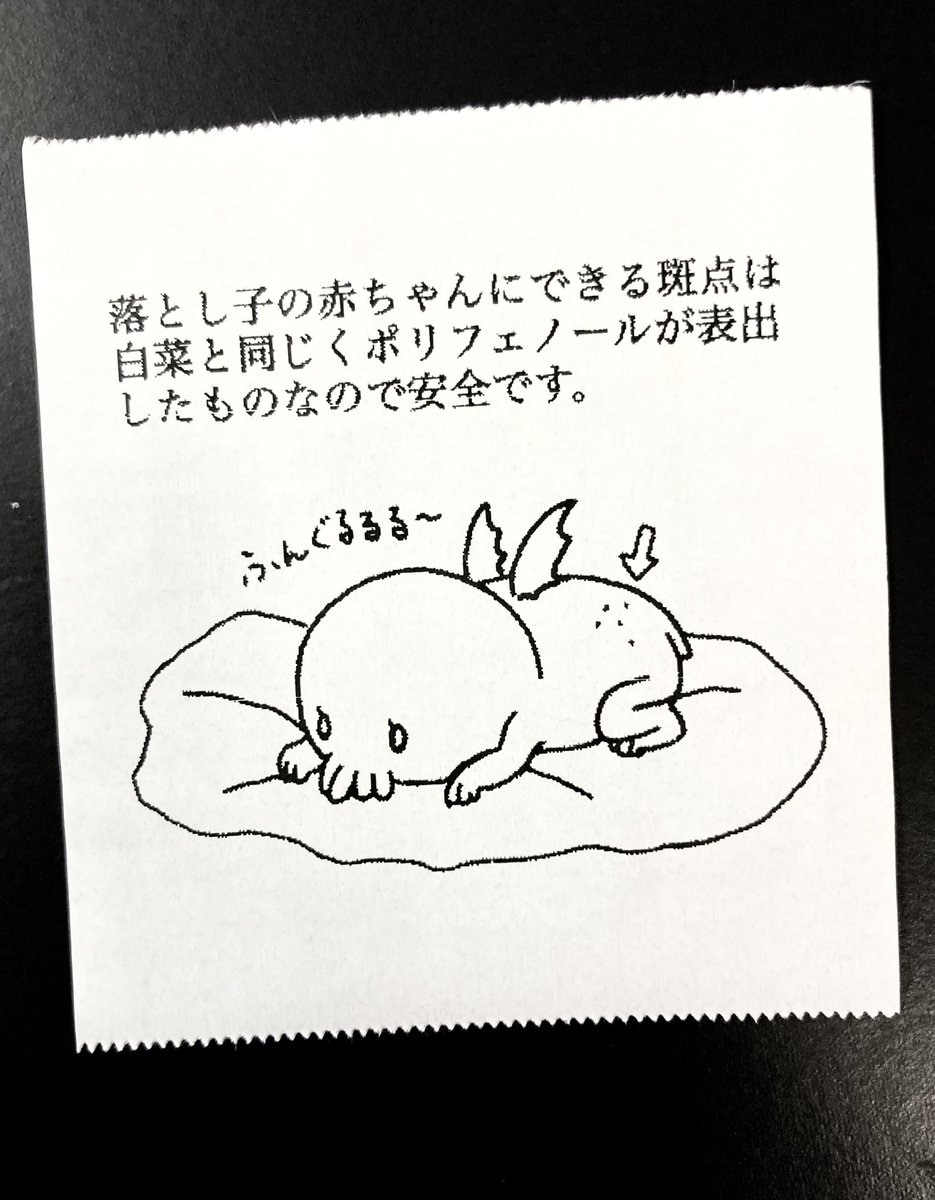 落とし子の赤ちゃんにできる斑点は
白菜と同じくポリフェノールが表出
したものなので安全です。
ふんぐるるる〜